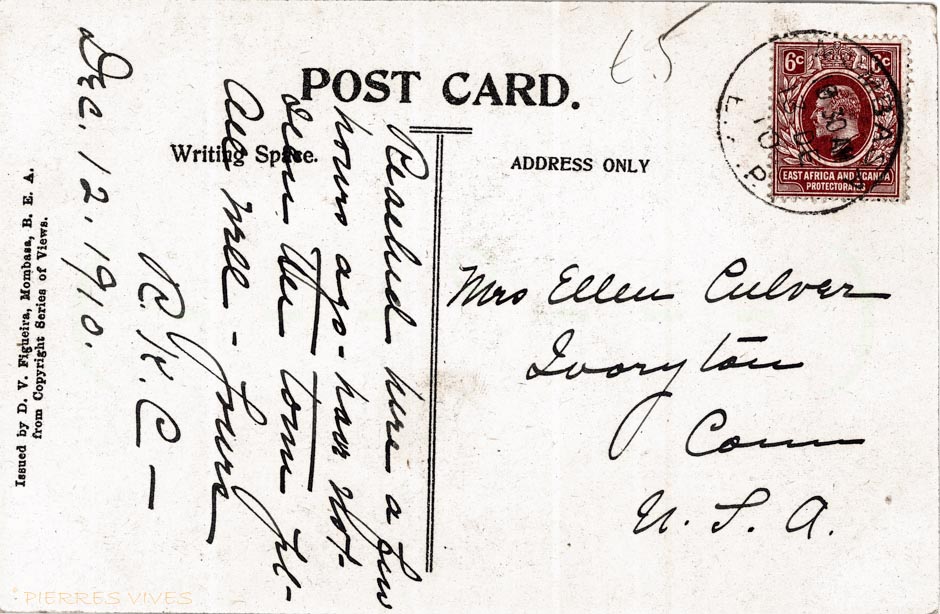 £5
POST CARD.
Writing Space.
ADDRESS ONLY
6c 6c
EAST AFRICA AND UGANDA
PROTECTORATES
MOMBASA
8 30 AM
12 DE
10
Reached here a few
hours ago - have not
seen the town yet -
All well - Yours
R. K. C -
Dec. 12. 1910.
Mrs Ellen Culver
Ivoryton
Conn
U. S. A.
Issued by D. V. Figueira, Mombasa, B. E. A.
from Copyright Series of Views.
PIERRES VIVES